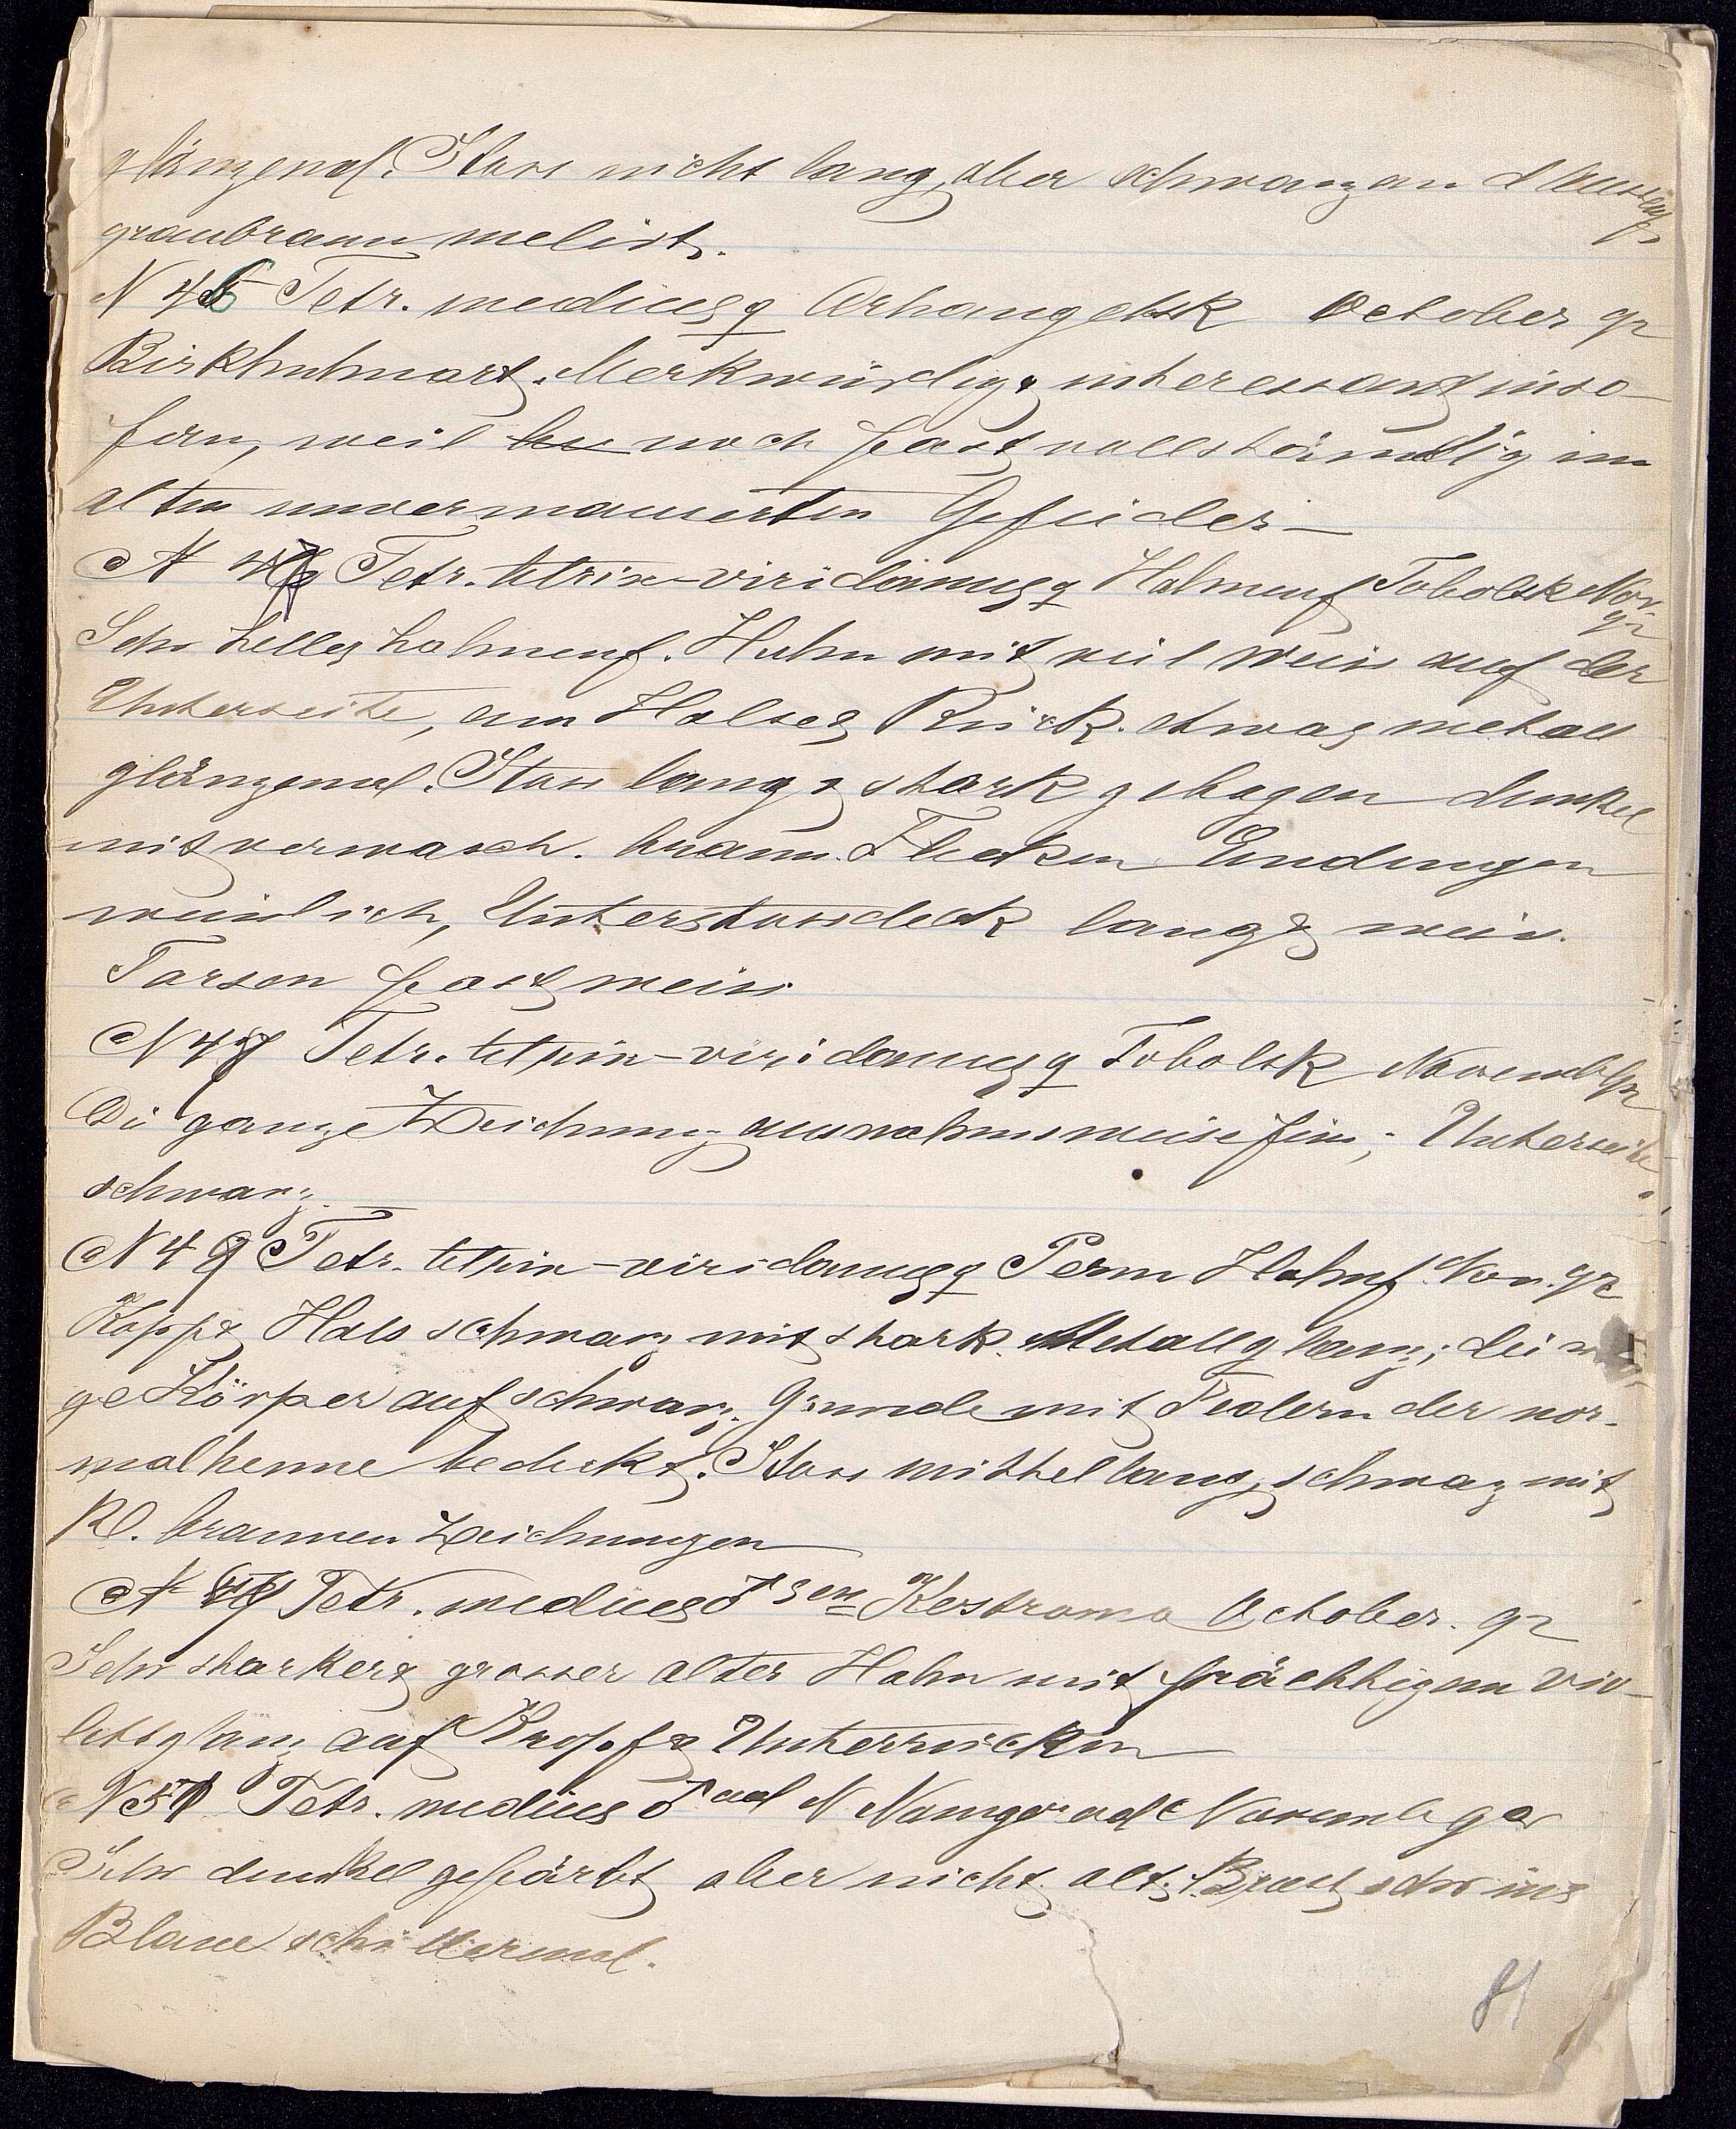 glänzend. Stoss nicht lang, aber schwarz an d
graubraun melirt.
N 46 Tetr. medius ♀ Archangelsk October 92
Birkhuhnart. Merkwürdig & interessant inso-
fern, weil noch fast vollständig im
alten unvermauserten Gefieder —
N 4 Tetr. tetrix-viridanus ♀ Hahnenf Tobolsk Nov. 92
Sehr helles hahnenf. Huhn mit viel weiss auf der
Unterseite, am Halse & Rück. etwas metall
glänzend. Stoss lang & stark gebogen dunkel
mit verwasch. braun. Flecken Endungen
weisslich, Unterstossdeck lang & weiss.
Tarsen fast weiss
N 48 Tetr. tetrix-viridanus ♀ Tobolsk Novemb 92
Di ganze Zeichnung ausnahmsweise fein; Unterseite
schwarz. —
N 49 Tetr. tetrix-viridanus ♀ Perm Hahnf. Nov. 92
Kopf & Hals schwarz mit stark. Metallglanz; der
ge Körper auf schwarz. Grunde mit Federn der nor-
malhenne bedeckt. Stoss mittellang, schwarz mit
kl. braunen Zeichnungen —
N Tetr. medius ♂ sen Kostroma October. 92
Sehr starker & grosser alter Hahn mit prächtigem vio-
lettglanz auf Kropf & Unterrücken —
N 51 Tetr. medius ♂ ad N Nowgorod Novemb 92
Sehr dunkel gefärbt aber nicht alt; Brust sehr ins
Blaue schillernd.
81